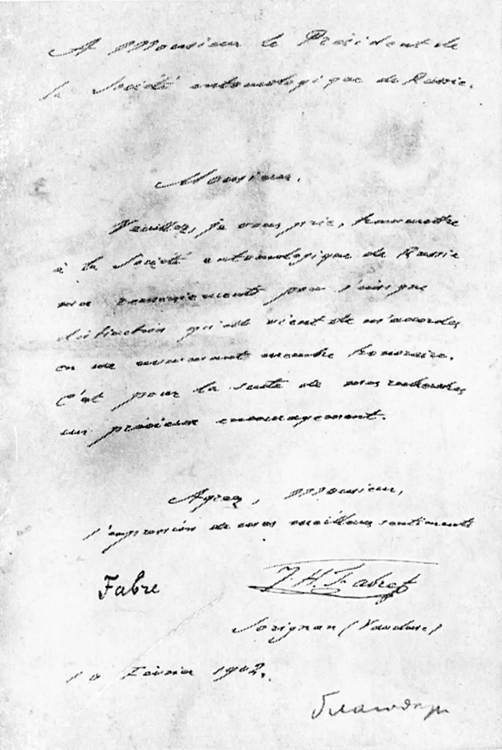 A Monsieur le Président de
la Société entomologique de Russie.
Monsieur,
Veuillez, je vous prie, transmettre
à la Société entomologique de Russie
mes remerciements pour l'insigne
distinction qu'elle vient de m'accorder
en me nommant membre honoraire.
C'est pour la suite de mes recherches
un précieux encouragement.
Agréez, Monsieur,
l'expression de mes meilleurs sentiments
Fabre J. H. Fabre
Sérignan (Vaucluse)
Février 1902.